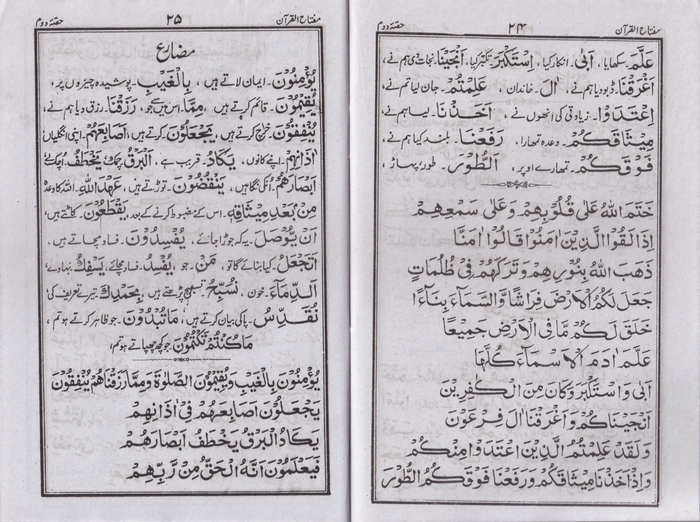 مفتاح القرآن ۲۴ حصّہ دوم
عَلَّمَ۔ سکھایا، اَبٰی۔ انکار کیا، اِسْتَکْبَرَ۔ تکبّر کیا، اَنْجَیْنَا۔ نجات دی ہم نے،
اَغْرَقْنَا۔ ڈبو دیا ہم نے، اٰلَ۔ خاندان، عَلِمْتُمْ۔ جان لیا تم نے،
اِعْتَدَوْا۔ زیادتی کی انھوں نے، اَخَذْنَا۔ لیا ہم نے،
مِیْثَاقَکُمْ۔ وعدہ تمھارا، رَفَعْنَا۔ بلند کیا ہم نے،
فَوْقَکُمْ۔ تمھارے اوپر، اَلطُّوْرَ۔ طور؛ پہاڑ،
خَتَمَ اللهُ عَلٰی قُلُوْبِهِمْ وَعَلٰی سَمْعِهِمْ
اِذَا لَقُوا الَّذِیْنَ اٰمَنُوْا قَالُوْا اٰمَنَّا
ذَهَبَ اللهُ بِنُوْرِهِمْ وَتَرَکَهُمْ فِیْ ظُلُمَاتٍ
جَعَلَ لَکُمُ الْاَرْضَ فِرَاشًا وَّالسَّمَآءَ بِنَآءًا
خَلَقَ لَکُمْ مَّا فِی الْاَرْضِ جَمِیْعًا
عَلَّمَ اٰدَمَ الْاَسْمَآءَ کُلَّهَا
اَبٰی وَاسْتَکْبَرَ وَکَانَ مِنَ الْکٰفِرِیْنَ
اَنْجَیْنَاکُمْ وَاَغْرَقْنَا اٰلَ فِرْعَوْنَ
وَلَقَدْ عَلِمْتُمُ الَّذِیْنَ اعْتَدَوْا مِنْکُمْ
وَاِذْ اَخَذْنَا مِیْثَاقَکُمْ وَرَفَعْنَا فَوْقَکُمُ الطُّوْرَ
مفتاح القرآن ۲۵ حصّہ دوم
مضارع
یُؤْمِنُوْنَ۔ ایمان لاتے ہیں، بِالْغَیْبِ۔ پوشیدہ چیزوں پر،
یُقِیْمُوْنَ۔ قائم کرتے ہیں، مِمَّا۔ اس میں سے جو، رَزَقْنَا۔ رزق دیا ہم نے،
یُنْفِقُوْنَ۔ خرچ کرتے ہیں، یَجْعَلُوْنَ۔ کرتے ہیں، اَصَابِعَهُمْ۔ اپنی انگلیاں
اٰذَانِهِمْ۔ اپنے کانوں، یَکَادُ۔ قریب ہے، اَلْبَرْقُ۔ چمک، یَخْطَفُ۔ اُچک لے
اَبْصَارَهُمْ۔ انکی نگاہیں، یَنْقُضُوْنَ۔ توڑتے ہیں، عَهْدَ اللهِ۔ اللہ کا وعدہ
مِنْ بَعْدِ مِیْثَاقِهٖ۔ اس کے مضبوط کرنے کے بعد، یَقْطَعُوْنَ۔ کاٹتے ہیں،
اَنْ یُّوْصَلَ۔ یہ کہ جوڑا جائے، یُفْسِدُوْنَ۔ فساد مچاتے ہیں،
اَتَجْعَلُ۔ کیا بنائے گا تو، مَنْ۔ جو، یُفْسِدُ۔ فساد مچائے، یَسْفِکُ۔ بہا دے،
اَلدِّمَآءَ۔ خون، نُسَبِّحُ۔ تسبیح پڑھتے ہیں، بِحَمْدِکَ۔ تیرے تعریف کی،
نُقَدِّسُ۔ پاکی بیان کرتے ہیں، مَا تُبْدُوْنَ۔ جو ظاہر کرتے ہو تم،
مَا کُنْتُمْ تَکْتُمُوْنَ۔ جو کچھ چھپاتے ہو تم،
یُؤْمِنُوْنَ بِالْغَیْبِ وَیُقِیْمُوْنَ الصَّلٰوةَ وَمِمَّا رَزَقْنَاهُمْ یُنْفِقُوْنَ
یَجْعَلُوْنَ اَصَابِعَهُمْ فِیْ اٰذَانِهِمْ
یَکَادُ الْبَرْقُ یَخْطَفُ اَبْصَارَهُمْ
فَیَعْلَمُوْنَ اَنَّهُ الْحَقُّ مِنْ رَّبِّهِمْ